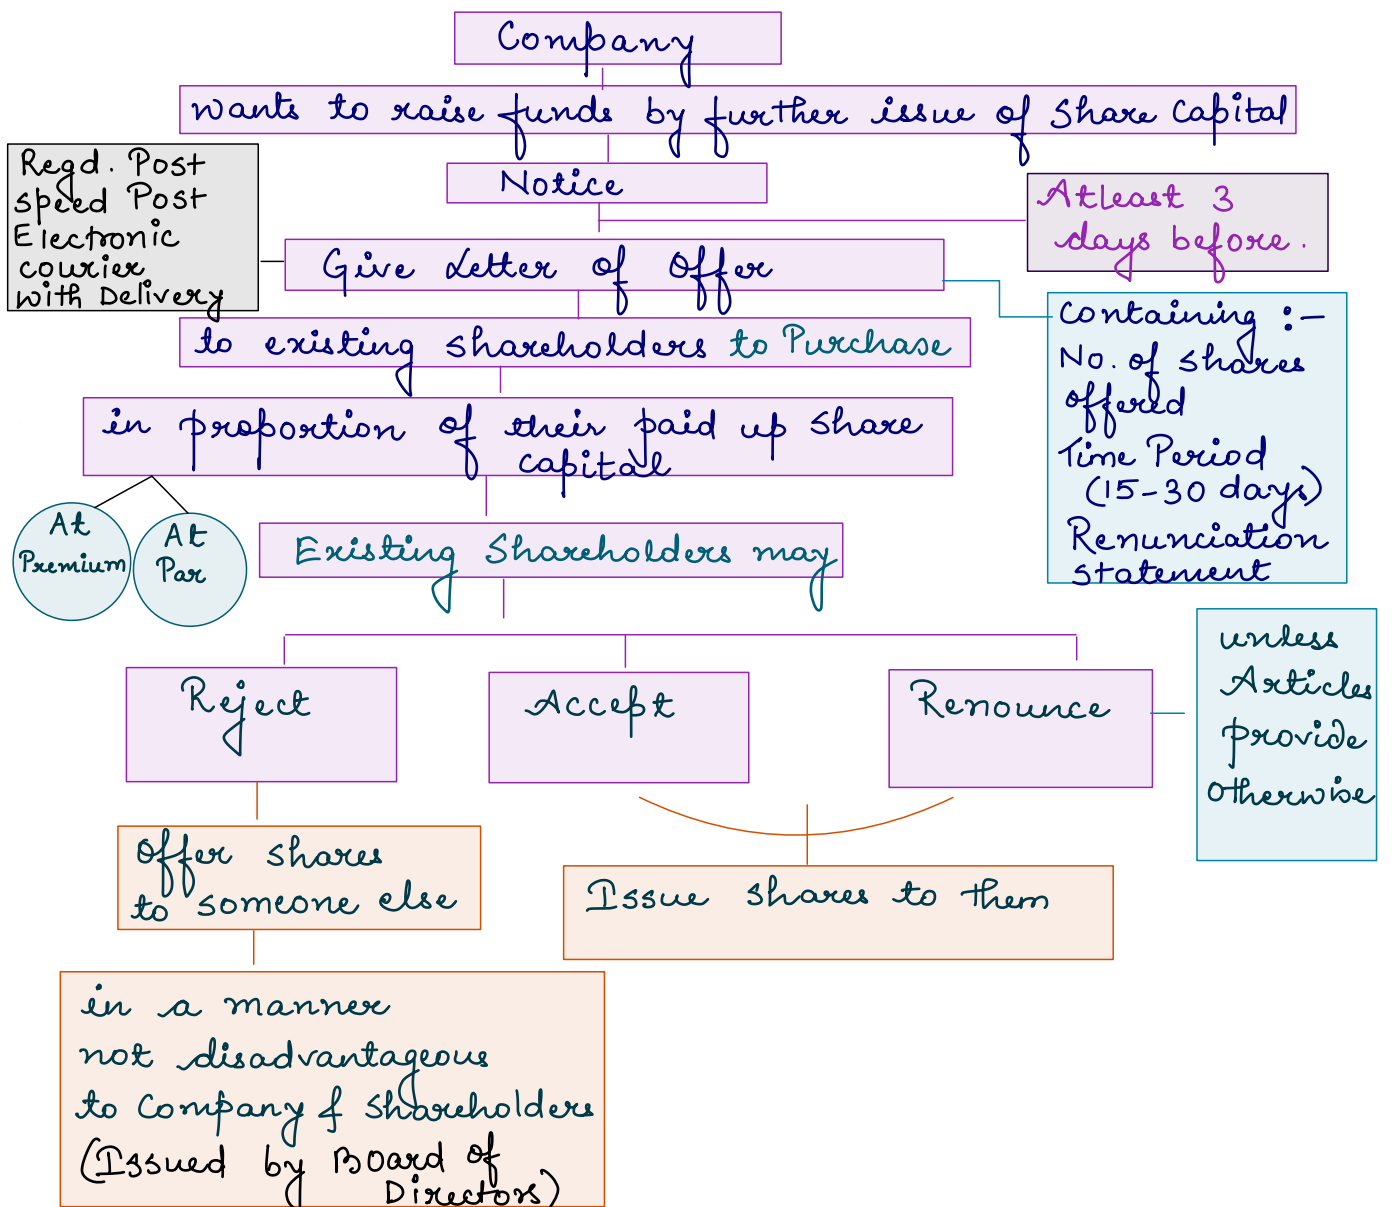 Company
wants to raise funds by further issue of Share Capital
Regd. Post
speed Post
Electronic
courier
with Delivery
Notice
Atleast 3
days before.
Give Letter of Offer
to existing shareholders to Purchase
containing :-
No. of shares
offered
Time Period
(15-30 days)
Renunciation
statement
in proportion of their paid up share
capital
At
Premium
At
Par
Existing Shareholders may
Reject
Accept
Renounce
unless
Articles
provide
Otherwise
Offer shares
to someone else
Issue shares to them
in a manner
not disadvantageous
to Company & Shareholders
(Issued by Board of
Directors)